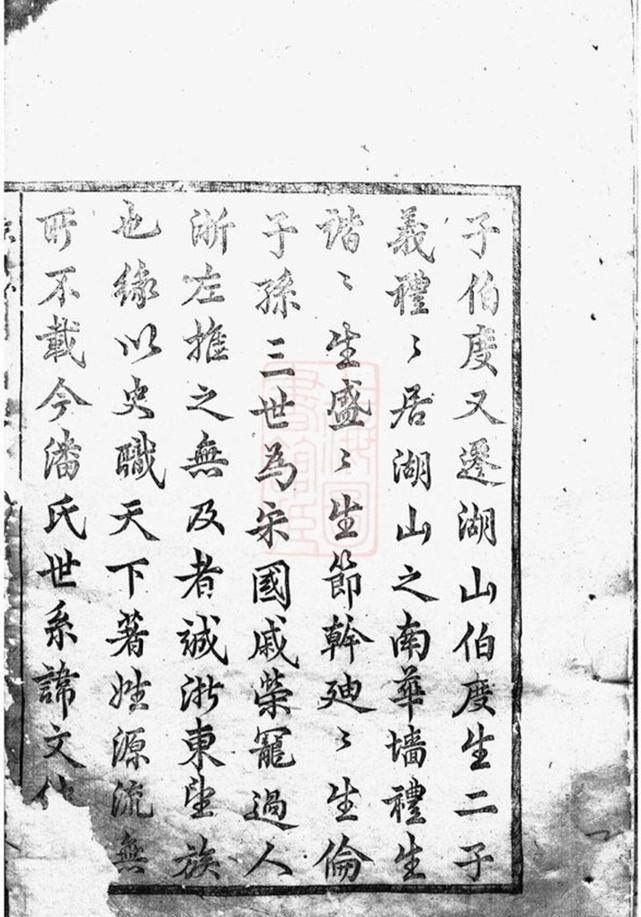 子伯度又遷湖山伯度生二子
義禮〻居湖山之南華墻禮生
諧〻生盛〻生節幹廸〻生倫
子孫三世為宋國戚榮寵過人
浙左推之無及者誠浙東望族
也緣以史職天下著姓源流無
所不載今潘氏世系諱文